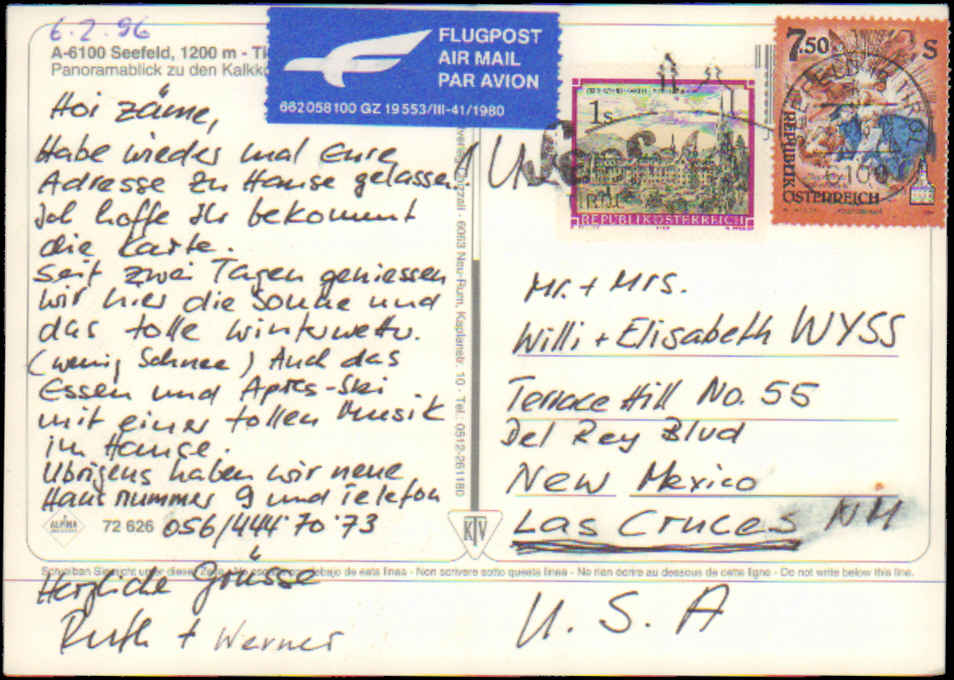 6.2.96
A-6100 Seefeld, 1200 m -
Panoramablick zu den
FLUGPOST
AIR MAIL
PAR AVION
662058100 GZ 19553/III-41/1980
Hoi zäme,
Habe wieder mal Eure
Adresse zu Hause gelassen
Ich hoffe Ihr bekommt
die Karte.
Seit zwei Tagen geniessen
wir hier die Sonne und
das tolle Winterwetter.
(wenig Schnee) Auch das
Essen und Après-Ski
mit einer tollen Musik
im Hause.
Übrigens haben wir neue
Hausnummer 9 und Telefon
056/444'70'73
Herzliche Grüsse
Ruth + Werner
ALPINA
72 626
6063 Neu-Rum, Kaplanstr. 10 · Tel. 0512-261180
KTV
1s
REPUBLIK ÖSTERREICH
7.50 S
REPUBLIK
ÖSTERREICH
SEEFELD IN TIROL
6100
Mr. + Mrs.
Willi + Elisabeth WYSS
Terrace Hill No. 55
Del Rey Blvd
New Mexico
Las Cruces NM
U.S.A
debajo de esta linea - Non scrivere sotto questa linea - Ne rien écrire au dessous de cette ligne - Do not write below this line.